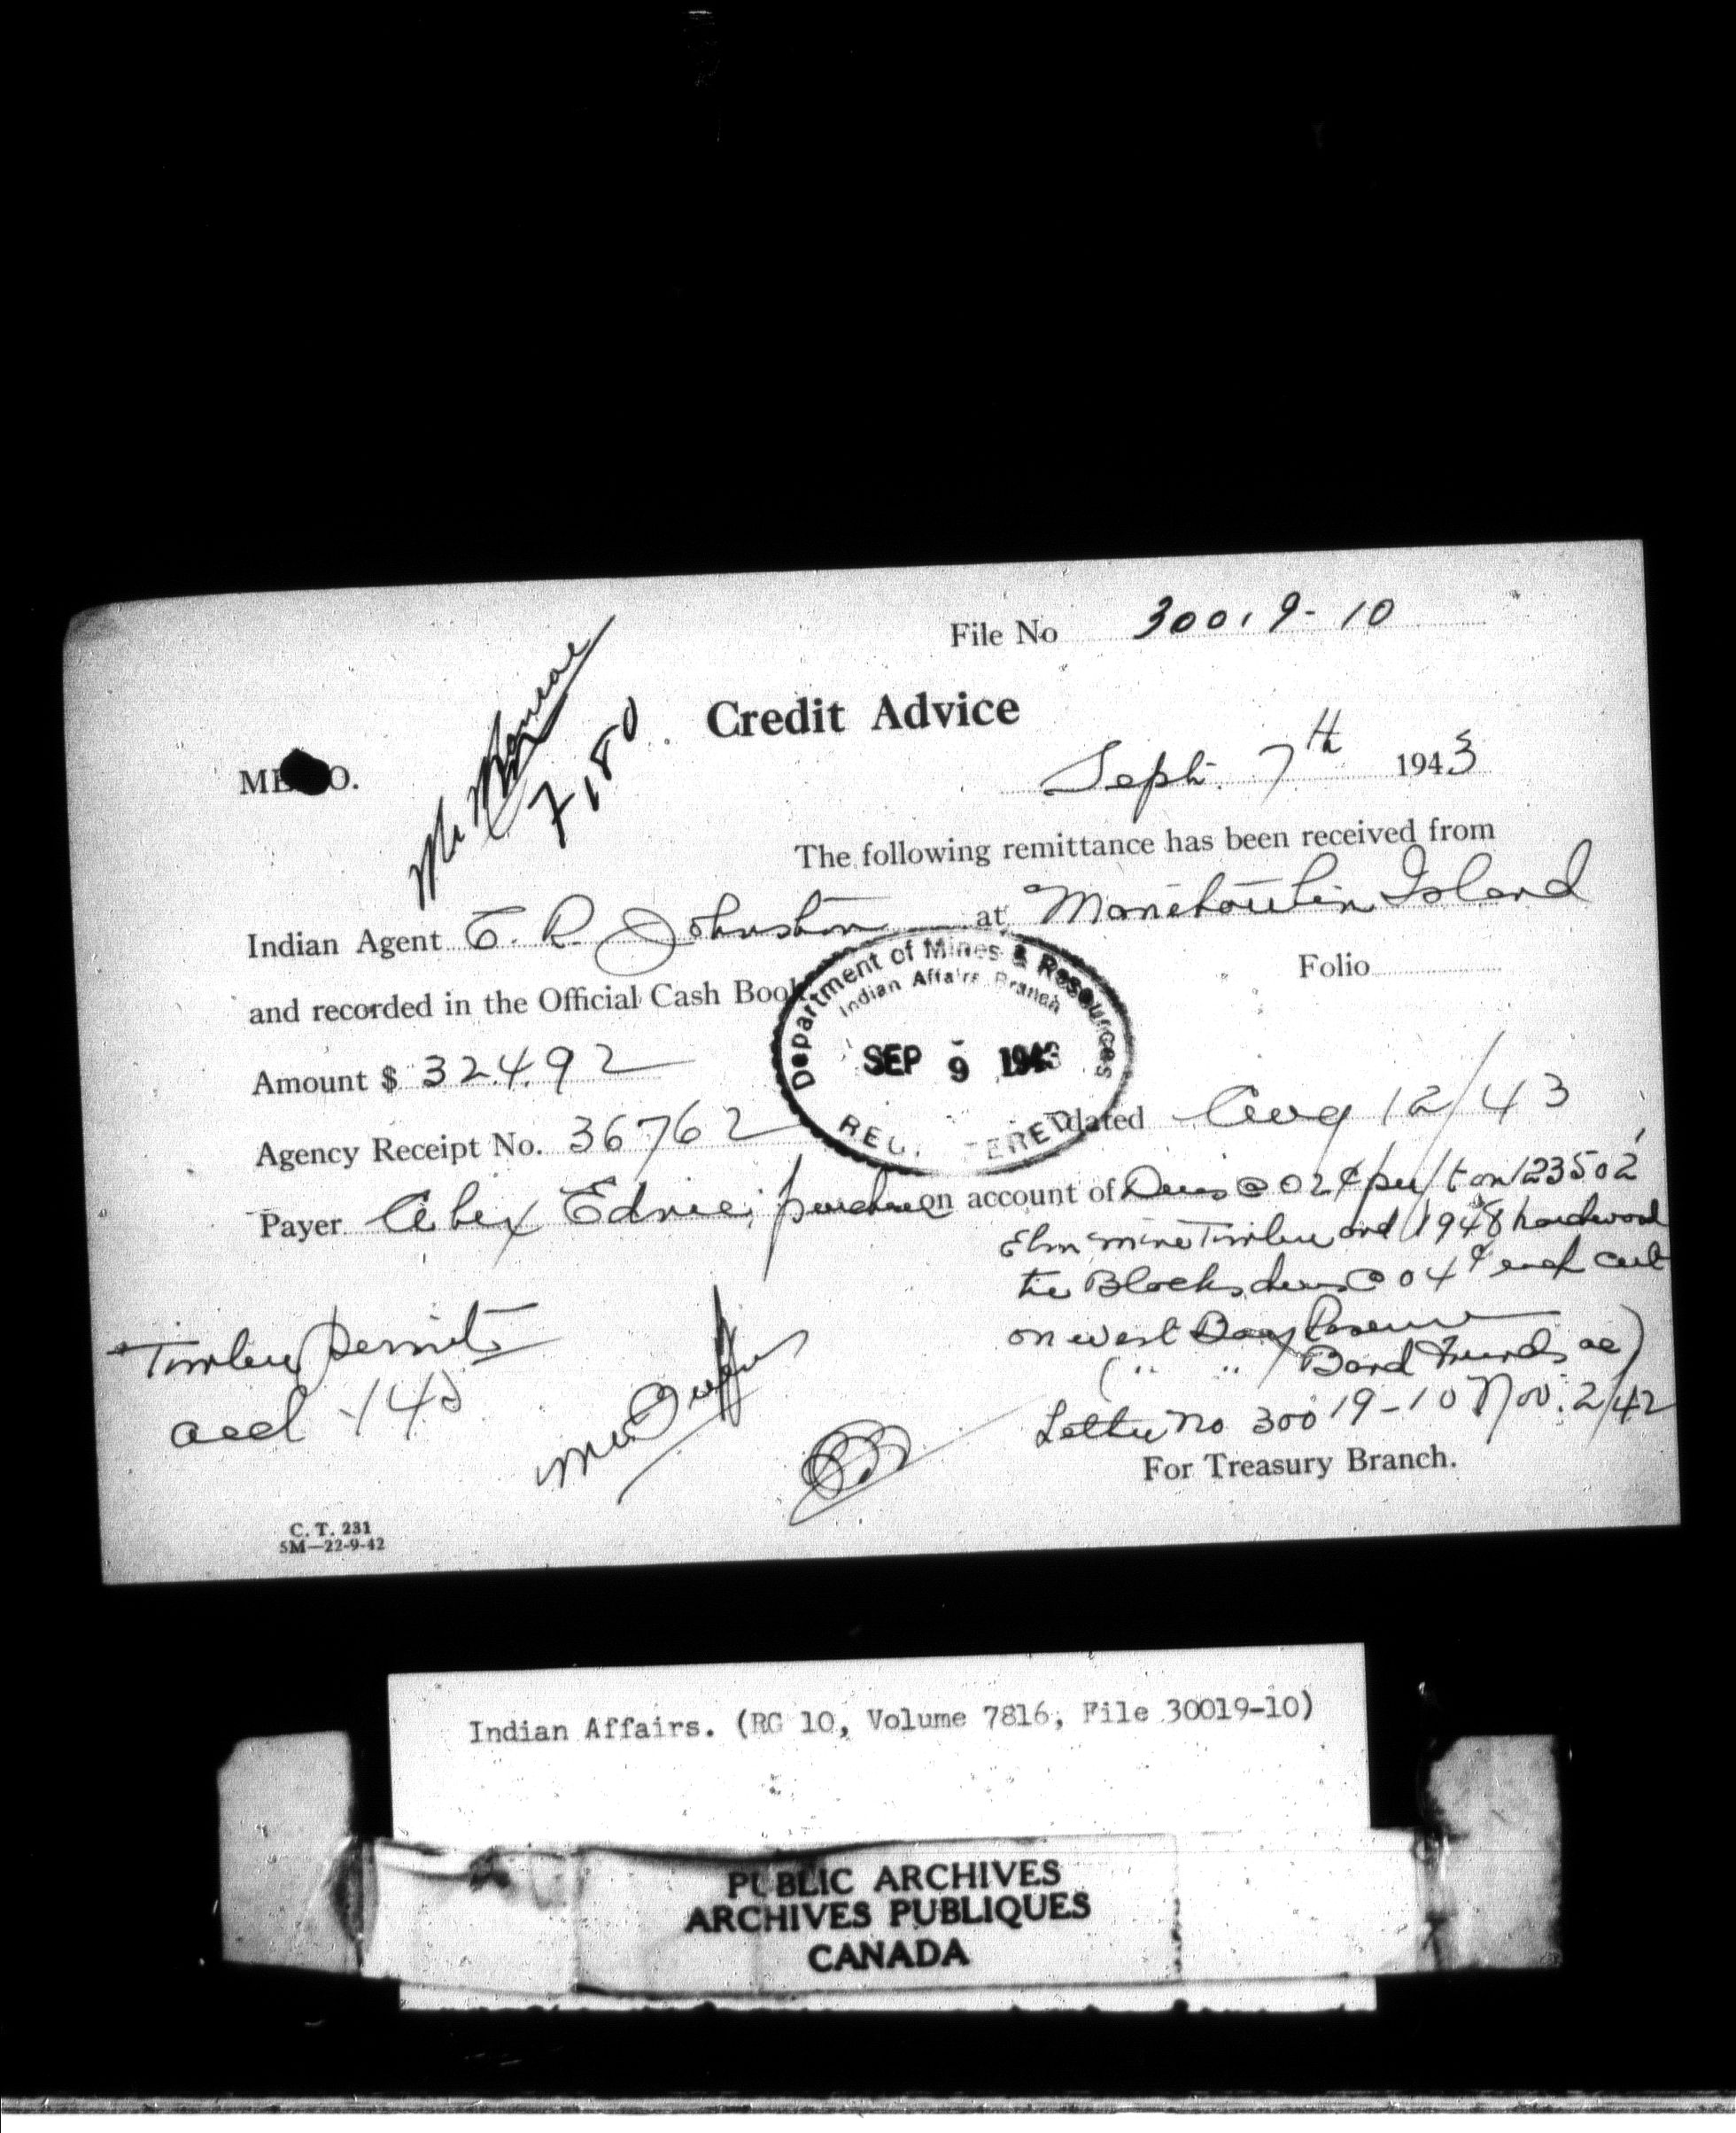 File No 30019-10
Credit Advice
MEMO.
7,180
Sept. 7th 1943
The following remittance has been received from
Indian Agent C. R. Johnston at Manitoulin Island
and recorded in the Official Cash Book Folio
Department of Mines & Resources
Indian Affairs Branch
SEP 9 1943
REGISTERED
Amount $ 324.92
Agency Receipt No. 36762 dated Aug 12/43
Payer purchase on account of Dues @ 02¢ per ft on 123502'
Elm mine Timber and 1948 hardwood
tie Blocks dues @ 04¢ each cut
on West Bay Reserve
( " " Band Funds ac)
Letter No 30019-10 Nov. 2/42
Timber Permit
acct 145
For Treasury Branch.
C. T. 231
5M—22-9-42
Indian Affairs. (RG 10, Volume 7816, File 30019-10)
PUBLIC ARCHIVES
ARCHIVES PUBLIQUES
CANADA